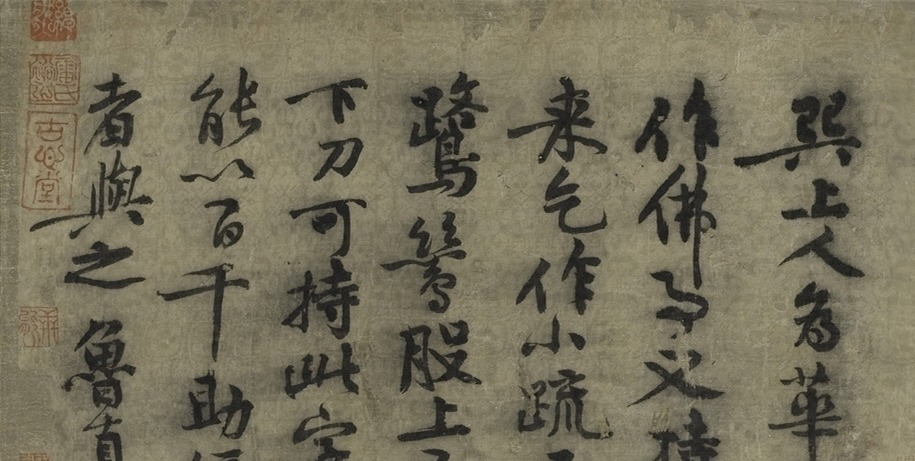 巽上人為華
作佛事父持
来乞作小疏
鷺鷥股上
下刀可持此字
能以百千助
者與之 魯直
古心堂